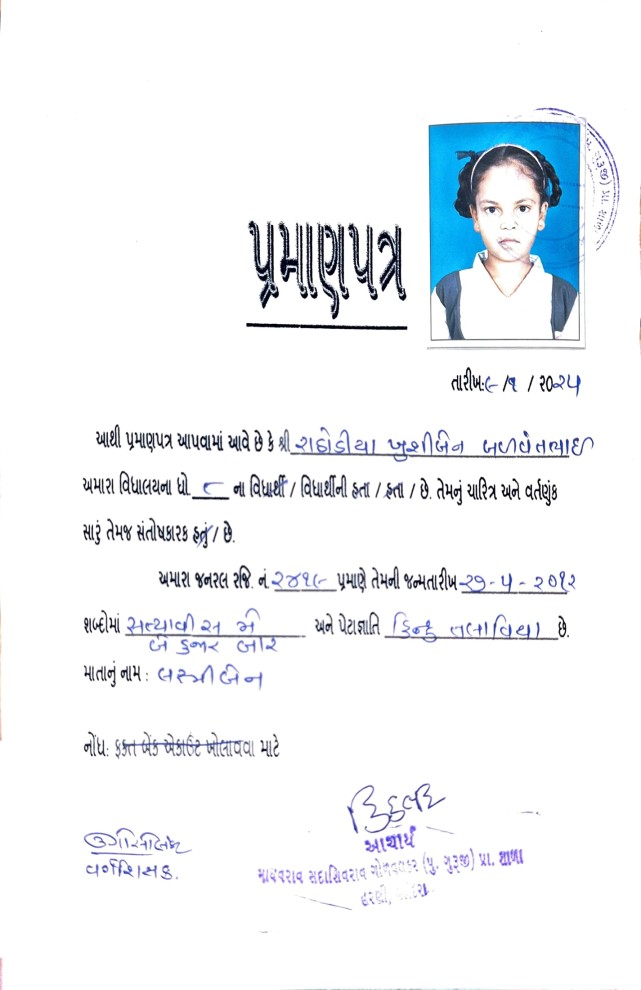 પ્રમાણપત્ર
તારીખ:૯/૧/૨૦૨૫
આથી પ્રમાણપત્ર આપવામાં આવે છે કે શ્રી રાઠોડીયા ખુશીબેન બળવંતભાઈ
અમારા વિધાલયના ધો ૮ ના વિધાર્થી / વિધાર્થીની હતા / હતા / છે. તેમનું ચારિત્ર અને વર્તણુંક
સારું તેમજ સંતોષકારક હતું/ છે.
અમારા જનરલ રજિ. નં ૨૪૧૯ પ્રમાણે તેમની જન્મતારીખ ૨૭-૫-૨૦૧૨
શબ્દોમાં સત્યાવીસ મે અને પેટાજ્ઞાતિ હિન્દુ તલાવિયા છે.
બે હજાર બાર
માતાનું નામ : લક્ષ્મીબેન
નોંધ: ફક્ત બેંક એકાઉંટ ખોલાવવા માટે
વર્ગશિક્ષક.
આચાર્ય
માધવરાવ સદાશિવરાવ ગોળવલકર (પુ. ગુરૂજી) પ્રા. શાળા
હરણી, વડોદરા